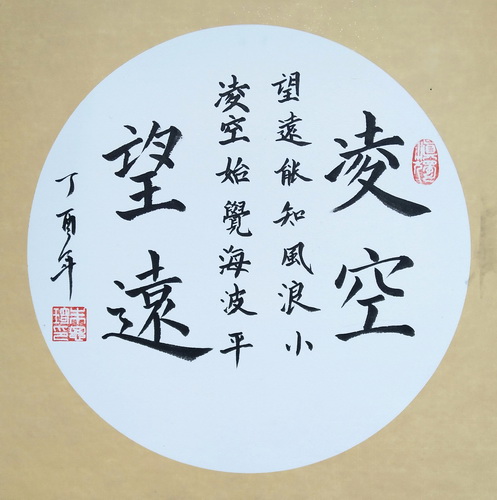 凌空
望遠能知風浪小
凌空始覺海波平
望遠
丁酉年